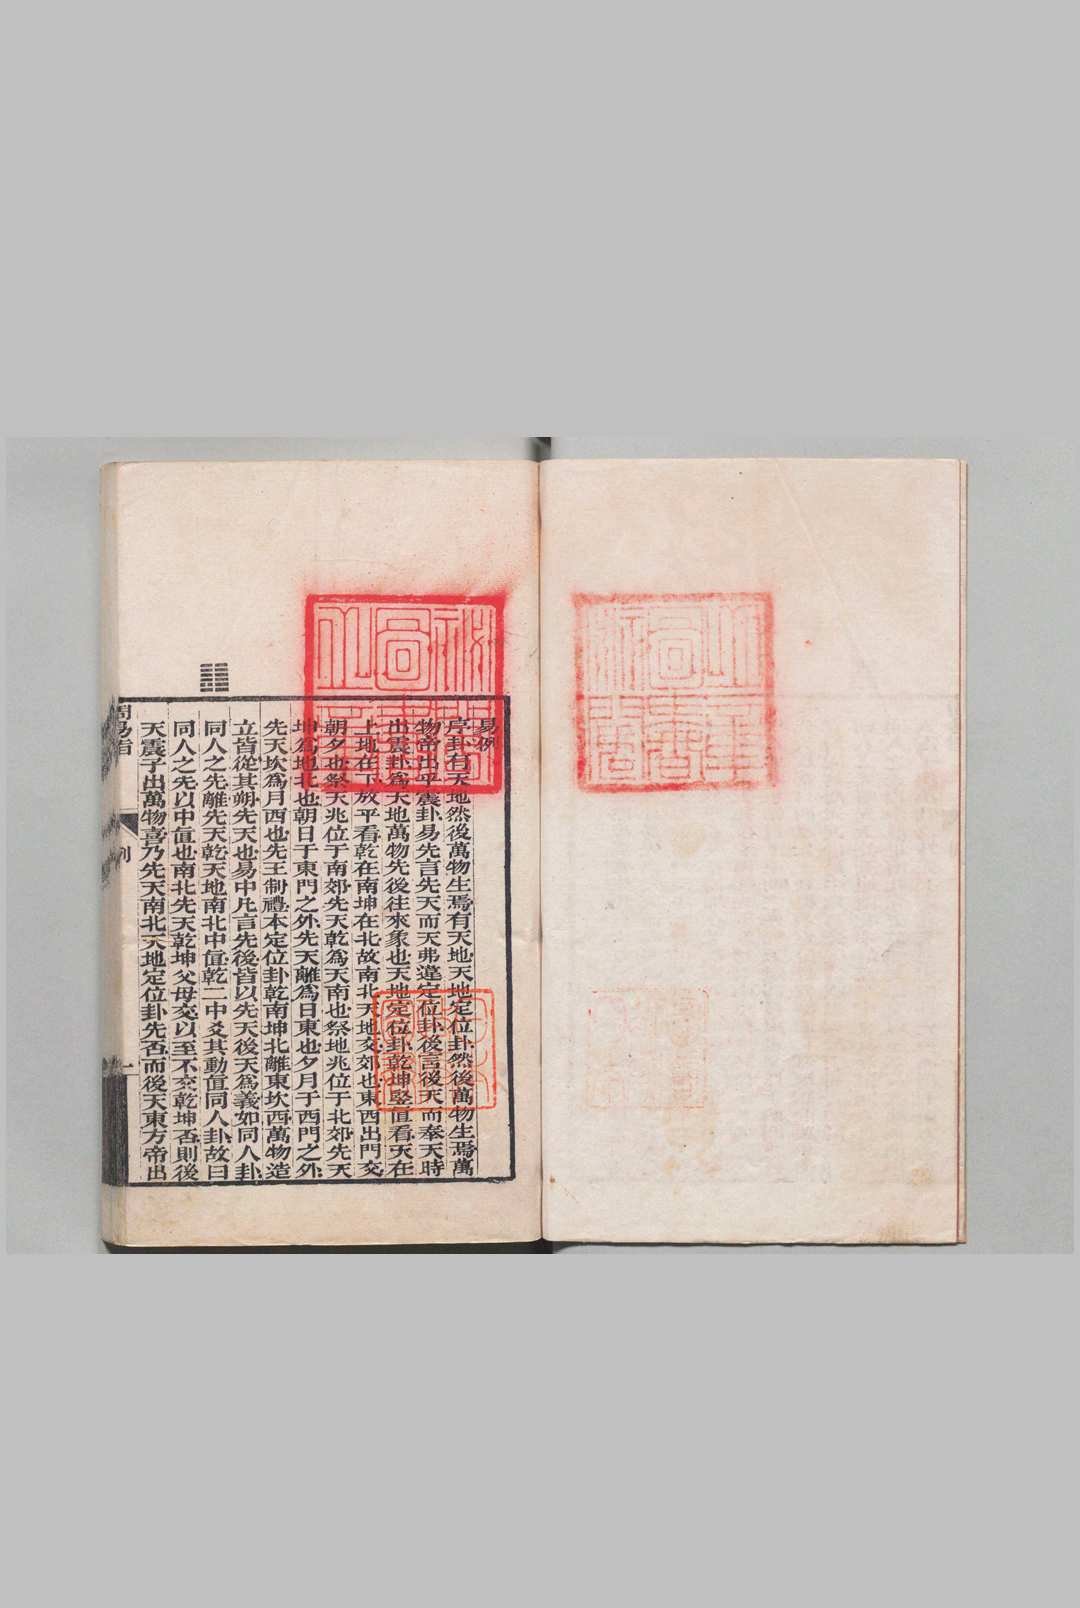 易例
序卦有天地然後萬物生焉有天地天地定位卦然後萬物生焉萬
物帝出乎震卦易先言先天而天弗違定位卦後言後天而奉天時
出震卦爲天地萬物先後往來象也天地定位卦乾坤竪直看天在
上地在下放平看乾在南坤在北故南北天地交郊也東西出門交
朝夕也祭天兆位于南郊先天乾爲天南也祭地兆位于北郊先天
坤爲地北也朝日于東門之外先天離爲日東也夕月于西門之外
先天坎爲月西也先王制禮本定位卦乾南坤北離東坎西萬物造
立皆從其朔先天也易中凡言先後皆以先天後天爲義如同人卦
同人之先離先天乾天地南北中直乾二中爻其動直同人卦故曰
同人之先以中直也南北先天乾坤父母交以至不交乾坤否則後
天震子出萬物喜乃先天南北天地定位卦先否而後天東方帝出
周易旨
例
一